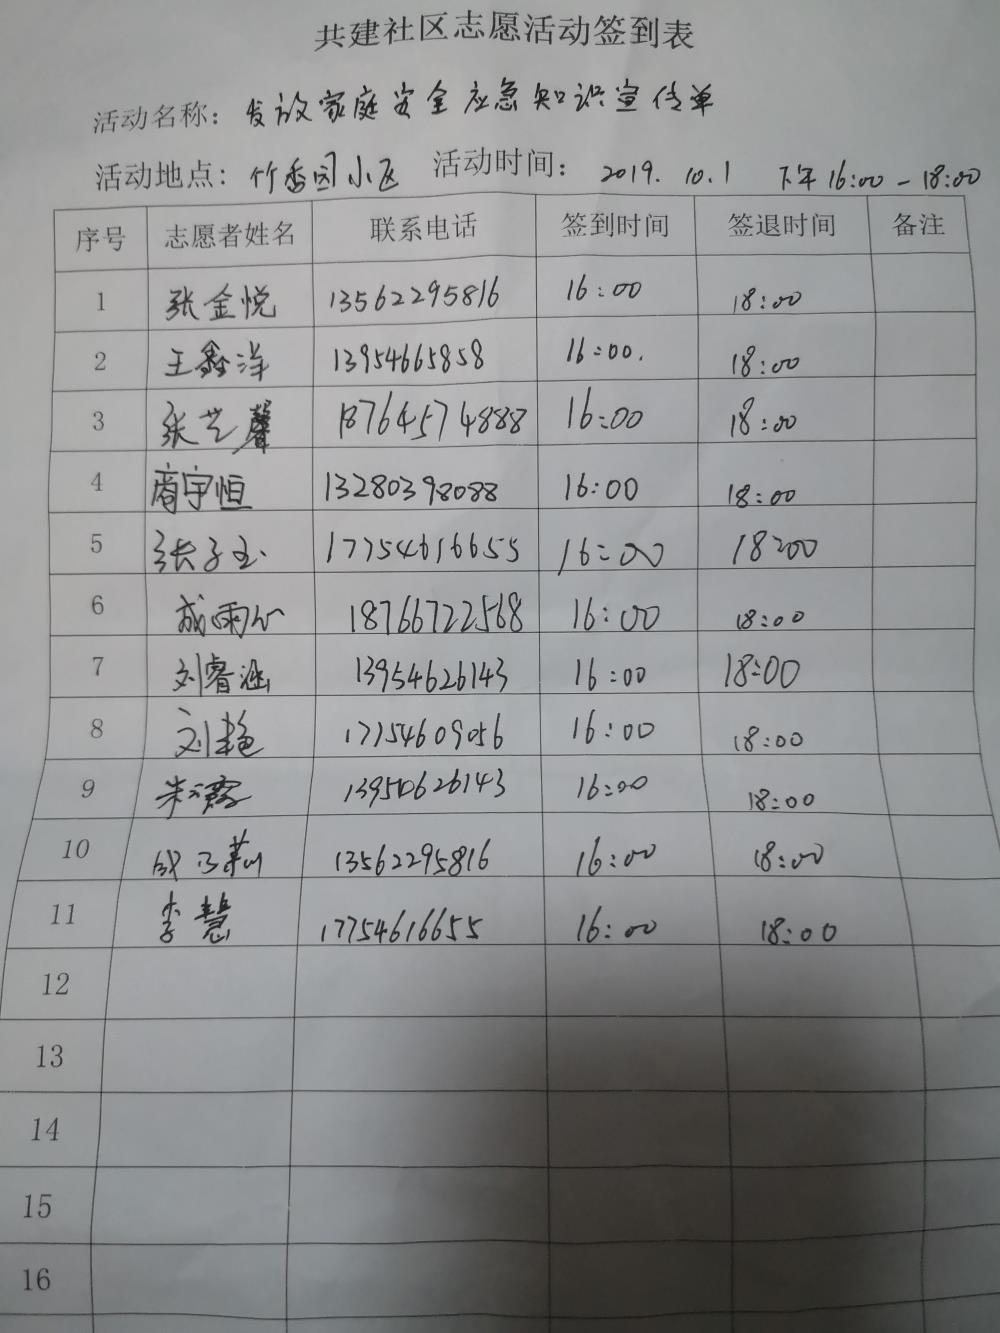 共建社区志愿活动签到表
活动名称：发放家庭安全应急知识宣传单
活动地点：竹香园小区 活动时间：2019.10.1 下午16:00-18:00
序号 志愿者姓名 联系电话 签到时间 签退时间 备注
1 张金悦 13562295816 16:00 18:00
2 王鑫洋 13954665858 16:00. 18:00
3 张艺馨 18764574888 16:00 18:00
4 商宇恒 13280398088 16:00 18:00
5 张子玉 17754616655 16:00 18:00
6 成雨心 18766722568 16:00 18:00
7 刘睿涵 13954626143 16:00 18:00
8 刘艳 17754609056 16:00 18:00
9 朱 13950626143 16:00 18:00
10 16:00 13562295816 18:00
11 李慧 17754616655 16:00 18:00
12
13
14
15
16